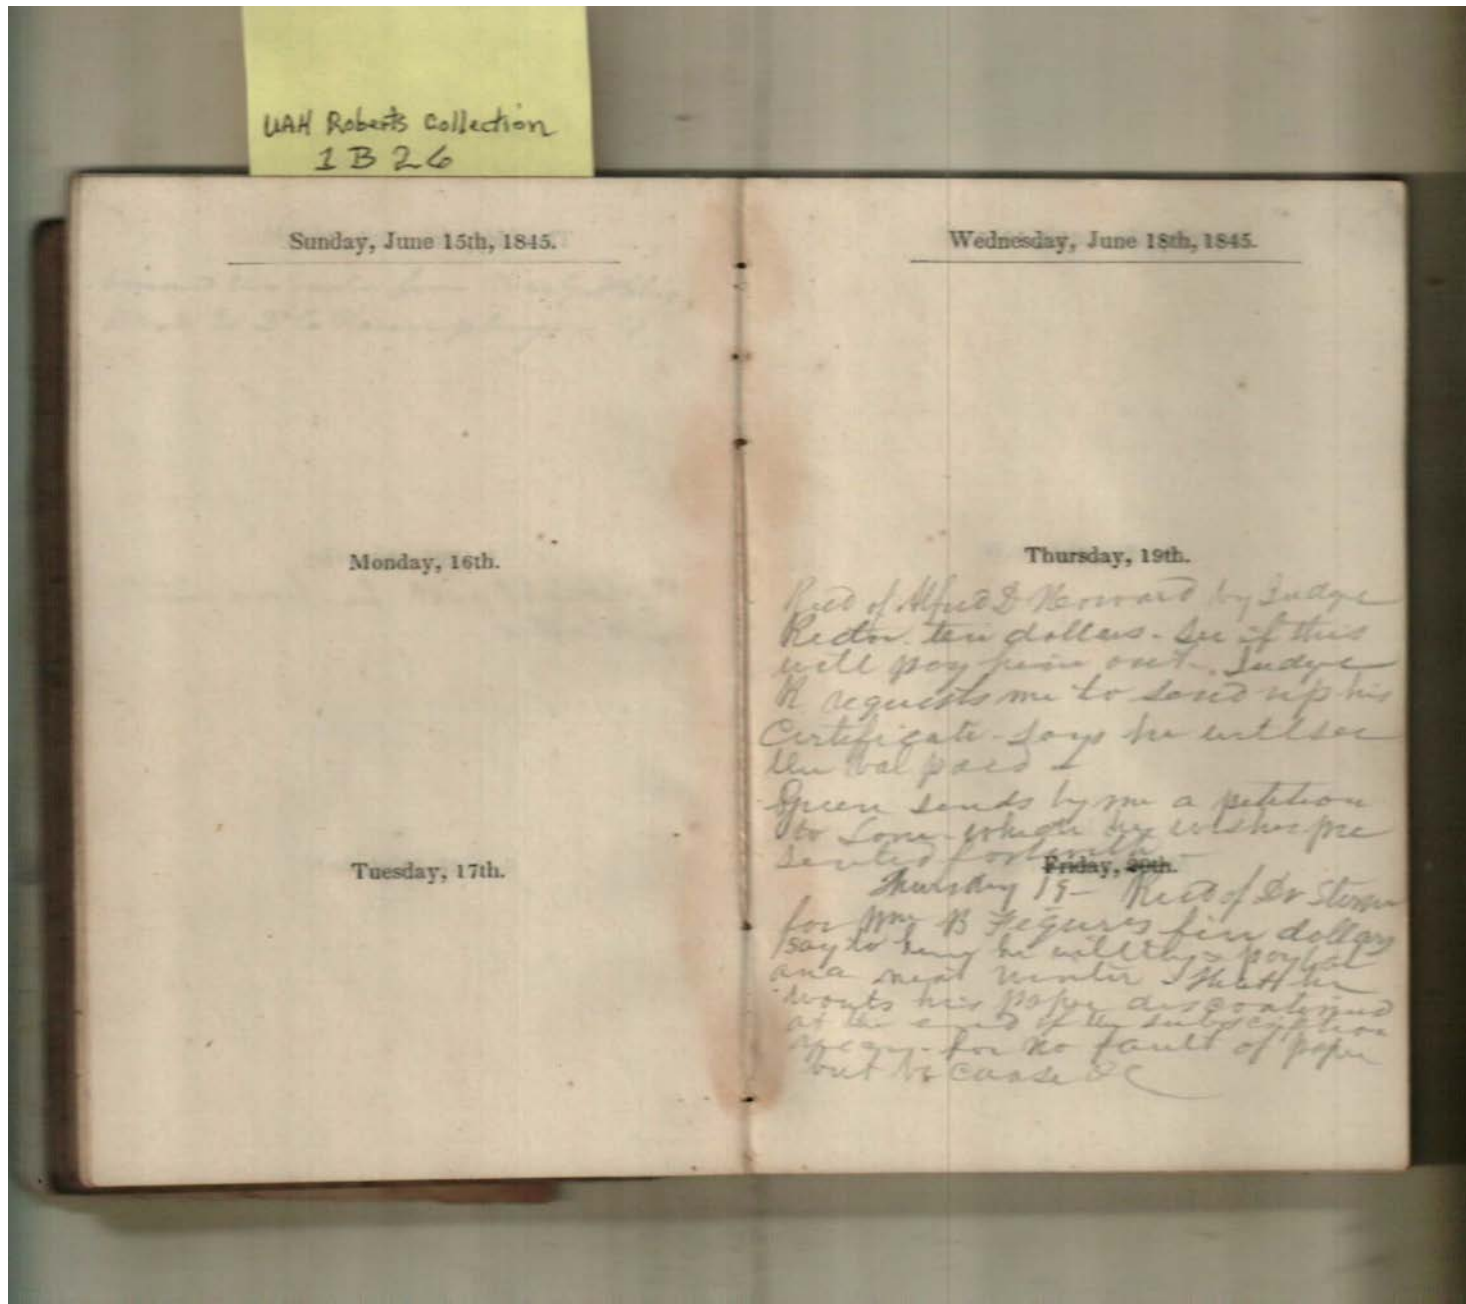 UAH Roberts Collection
1 B 26
Sunday, June 15th, 1845.
Monday, 16th.
Tuesday, 17th.
Wednesday, June 18th, 1845.
Thursday, 19th.
Recd of Alfred D by Judge
Rector ten dollars - See if this
will pay him out. Judge
R requests me to send up his
Certificate - says he will see
the bal paid -
Green sends by me a petition
to Lane which he wishes pre
sented forthwith
Friday, 20th.
Thursday 19 - Recd of Dr
for Wm B Figures five dollars
say to him he will pay bal
next winter & that he
wants his paper discontinued
at the end of the subscription
year - for no fault of paper
but because &c